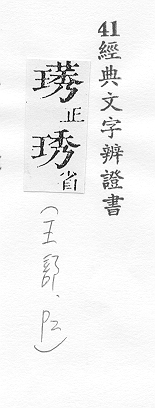 41 經典文字辨證書
璓正琇省
(王部、P2)